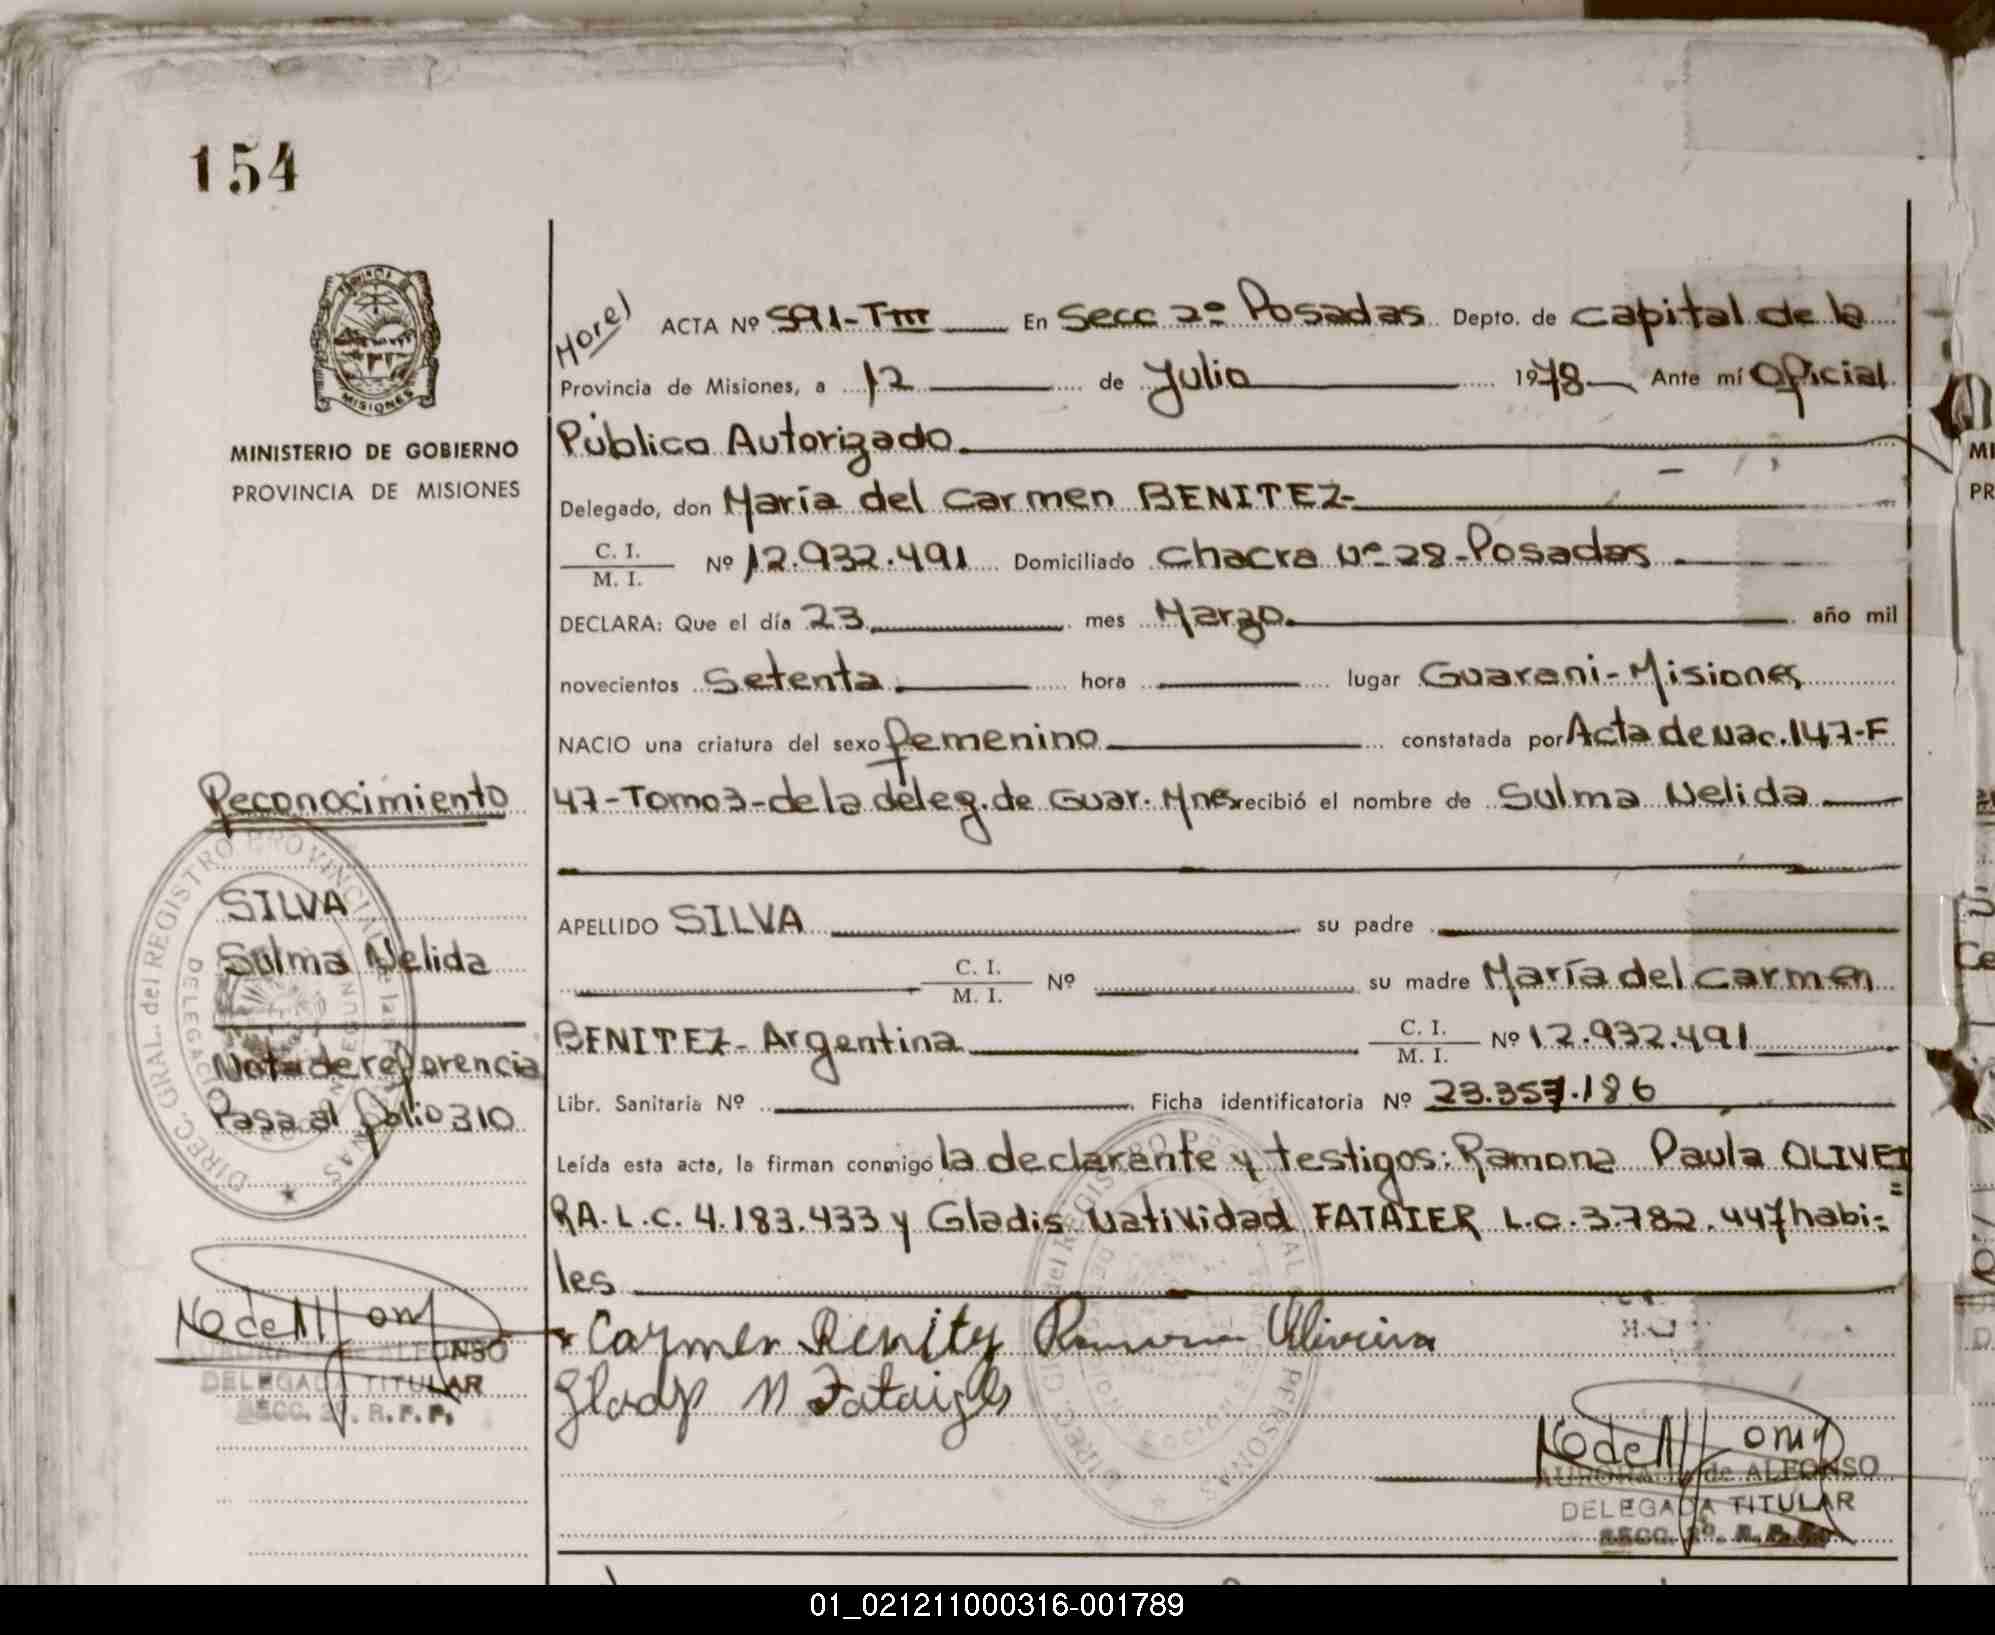 154
PROVINCIA
MISIONES
MINISTERIO DE GOBIERNO
PROVINCIA DE MISIONES
ACTA Nº 591-TIII En Secc 2º Posadas Depto. de Capital de la
Provincia de Misiones, a 12 de Julio 1978 Ante mí Oficial
Público Autorizado
Delegado, don María del Carmen BENITEZ-
C. I. / M. I. Nº 12.932.491 Domiciliado Chacra Nº 28-Posadas
DECLARA: Que el día 23 mes Marzo año mil
novecientos Setenta hora lugar Guarani-Misiones
NACIO una criatura del sexo femenino constatada por Acta de Nac. 147-F
47-Tomo 3-de la deleg. de Guar. Mnes recibió el nombre de Sulma Nelida
APELLIDO SILVA su padre
C. I. / M. I. Nº su madre María del Carmen
BENITEZ- Argentina C. I. / M. I. Nº 12.932.491
Libr. Sanitaria Nº Ficha identificatoria Nº 23.357.186
Leída esta acta, la firman conmigo la declarante y testigos: Ramona Paula OLIVEI
RA. L.C. 4.183.433 y Gladis Natividad FATAIER L.C. 3.782.447 habi=
les
Carmen Benitez Ramona Oliveira
Gladys N
de ALFONSO
DELEGADA TITULAR
SECC. 2º. R. P. P.
Reconocimiento
SILVA
Sulma Nelida
Nota de referencia
Pasa al folio 310
DIREC. GRAL. del REGISTRO PROVINCIAL de las PERSONAS
ALFONSO
DELEGADA TITULAR
SECC. 2º. R. P. P.
MI
PR
01_021211000316-001789